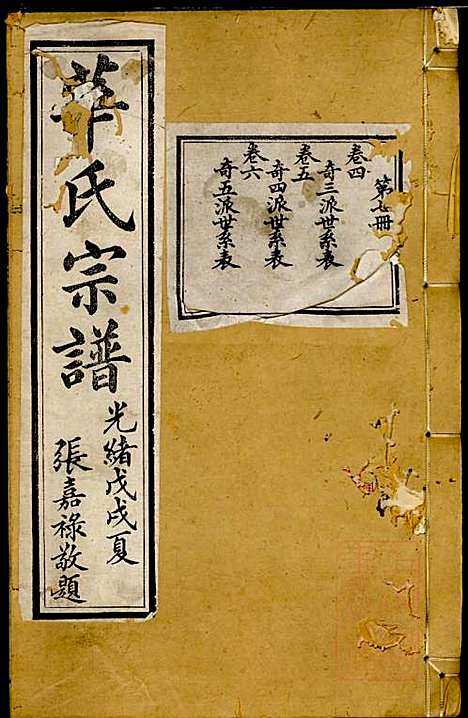 華氏宗譜
光緒戊戌夏
張嘉祿敬題
第七冊
卷四
奇三派世系表
卷五
奇四派世系表
卷六
奇五派世系表